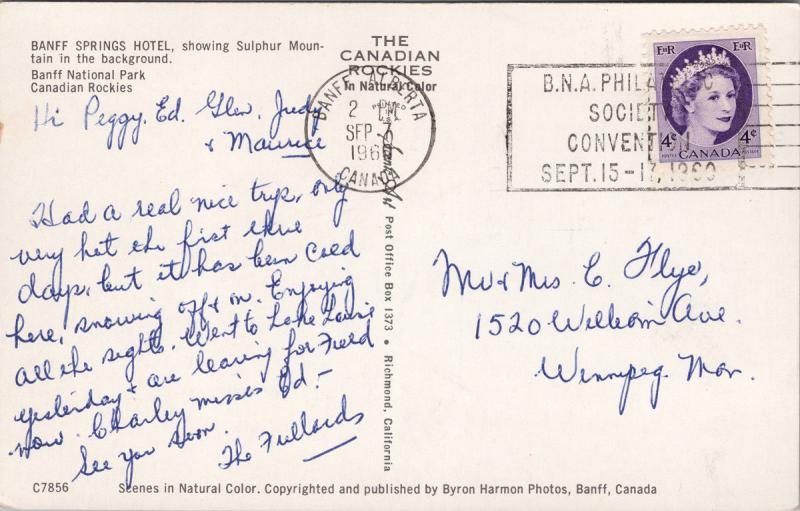 BANFF SPRINGS HOTEL, showing Sulphur Moun-
tain in the background.
Banff National Park
Canadian Rockies
THE
CANADIAN
ROCKIES
In Natural Color
BANFF ALBERTA
2 PM
SEP
1960
CANADA
PRINTED
IN
U.S.A.
B.N.A. PHILATELIC
SOCIETY
CONVENTION
SEPT. 15-17, 1960
EIIR EIIR
4c 4c
POSTES CANADA POSTAGE
Hi Peggy, Ed, Glen, Judy
& Maurice
Had a real nice trip, only
very hot the first three
days, but it has been cold
here, snowing off & on. Enjoying
all the sights. Went to Lake Louise
yesterday & are leaving for Field
now. Charley misses Ed. —
See you soon.
The Fullards
Post Office Box 1373 • Richmond, California
Mr & Mrs. C. Flye,
1520 William Ave.
Winnipeg. Man.
C7856
Scenes in Natural Color. Copyrighted and published by Byron Harmon Photos, Banff, Canada